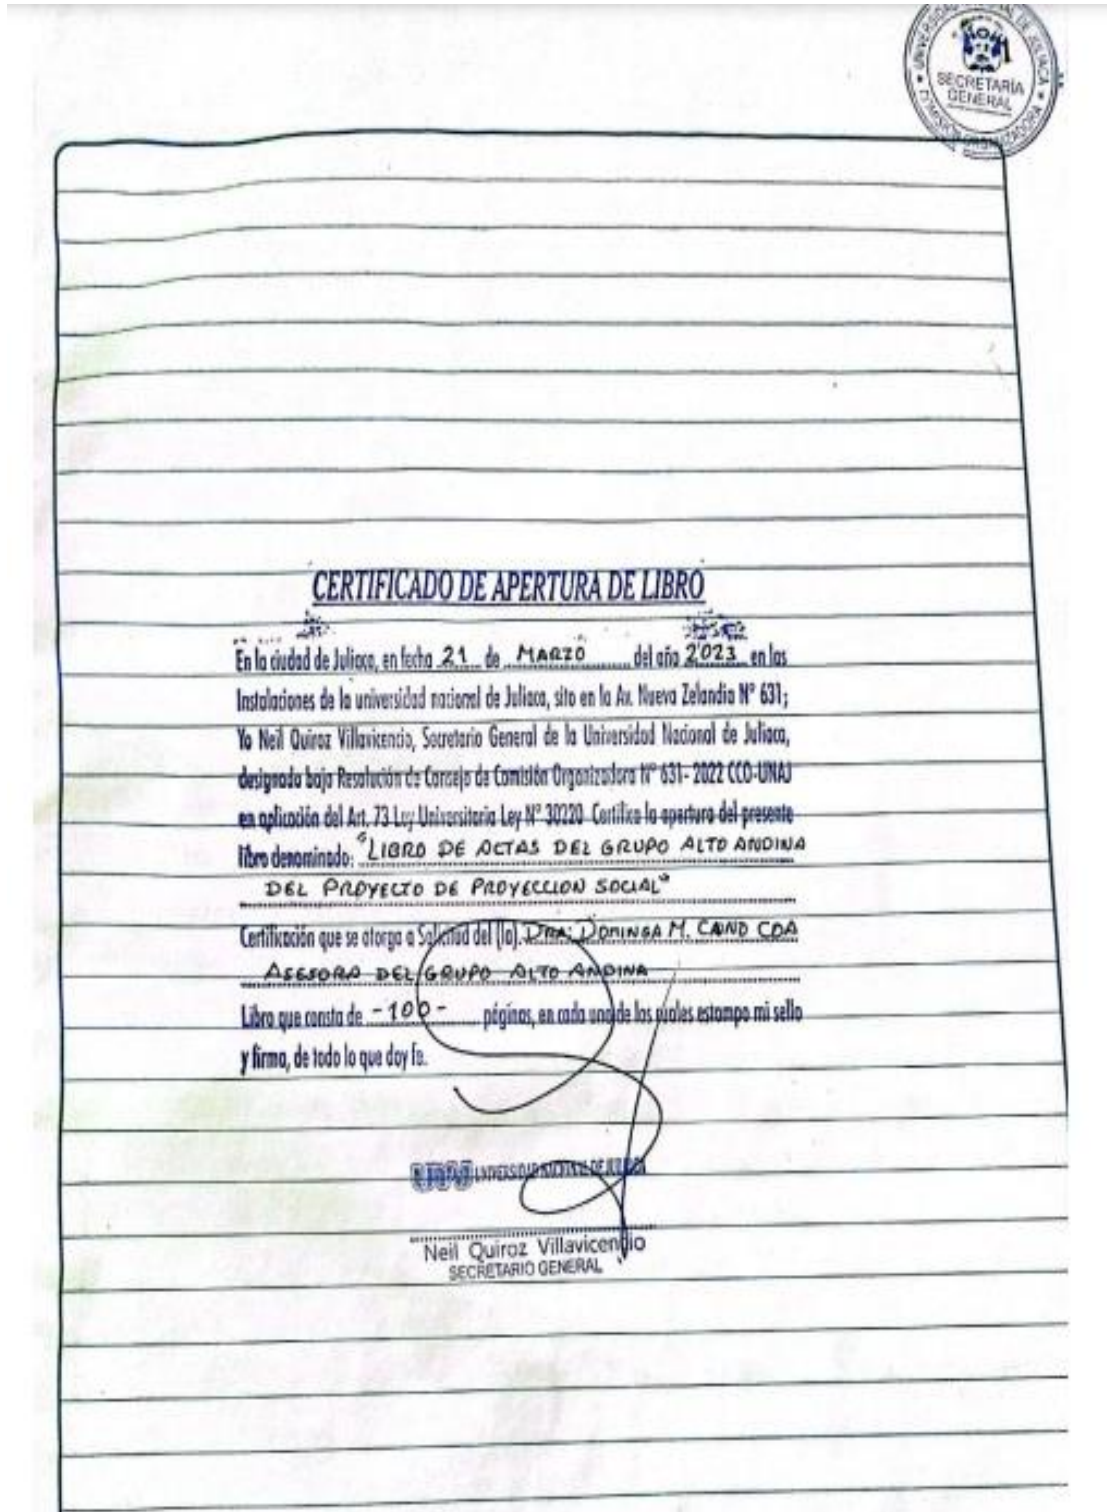 UNIVERSIDAD NACIONAL DE JULIACA
SECRETARÍA
GENERAL
COMISIÓN ORGANIZADORA
CERTIFICADO DE APERTURA DE LIBRO
En la ciudad de Juliaca, en fecha 21 de MARZO del año 2023 en las
Instalaciones de la universidad nacional de Juliaca, sito en la Av. Nueva Zelandia N° 631;
Yo Neil Quiroz Villavicencio, Secretario General de la Universidad Nacional de Juliaca,
designado bajo Resolución de Consejo de Comisión Organizadora N° 631- 2022 CCO-UNAJ
en aplicación del Art. 73 Ley Universitaria Ley N° 30220 Certifica la apertura del presente
libro denominado: "LIBRO DE ACTAS DEL GRUPO ALTO ANDINA
DEL PROYECTO DE PROYECCION SOCIAL"
Certificación que se otorga a Solicitud del (la). DRA: DOMINGA M. COA
ASESORA DEL GRUPO ALTO ANDINA
Libro que consta de -100- páginas, en cada una de las cuales estampo mi sello
y firma, de todo lo que doy fe.
UNIVERSIDAD NACIONAL DE JULIACA
Neil Quiroz Villavicencio
SECRETARIO GENERAL